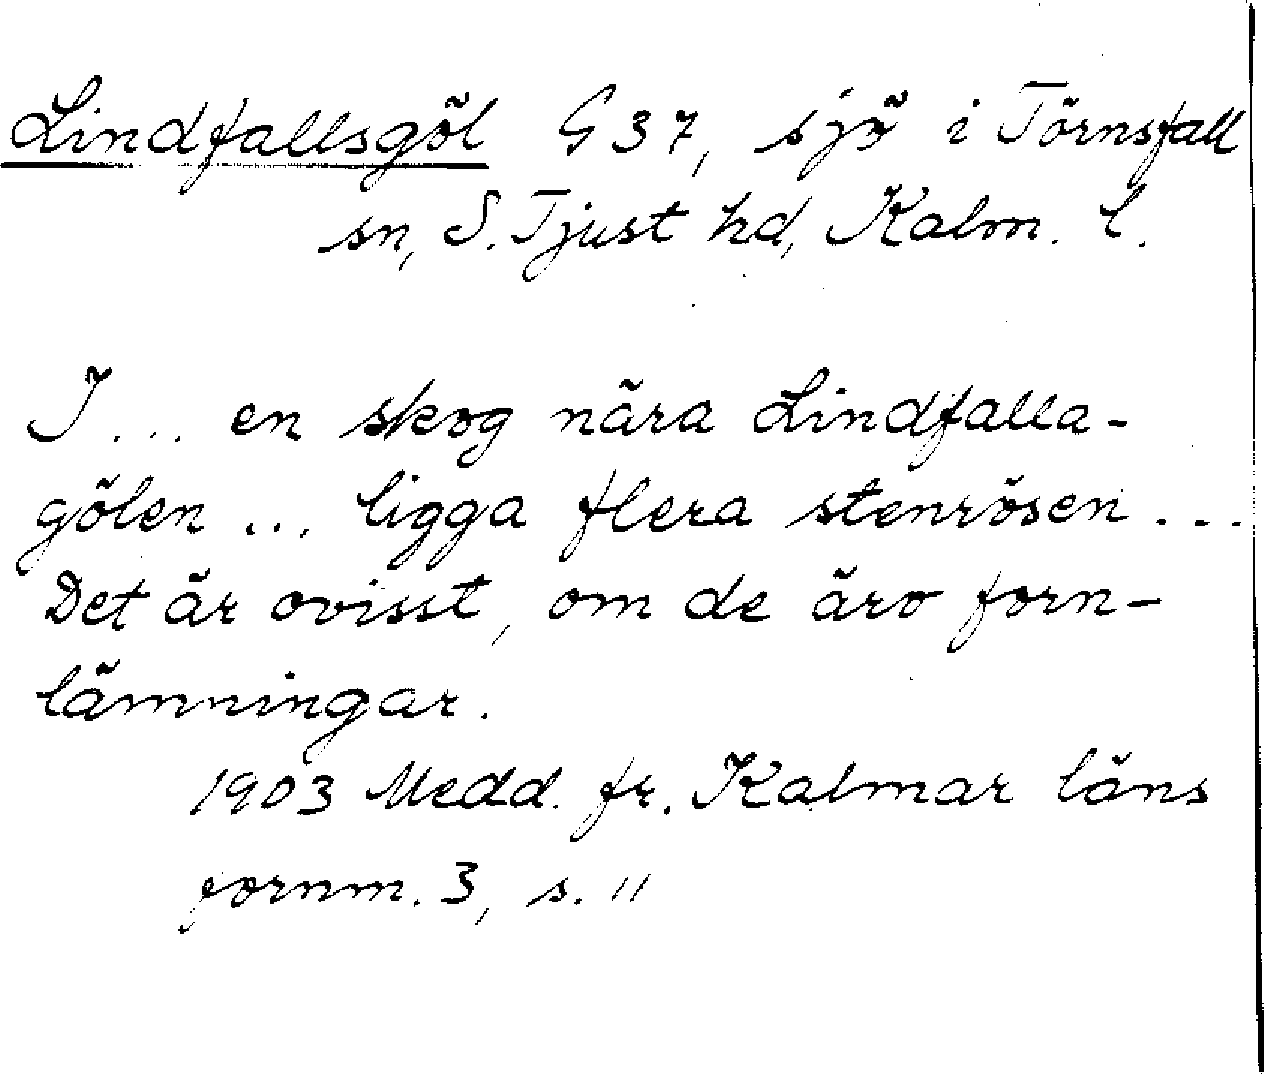 Lindfallsgöl G 37, sjö i Törnsfall
sn, S. Tjust hd, Kalm. l.
I ... en skog nära Lindfalla-
gölen ... ligga flera stenrösen ...
Det är ovisst, om de äro forn-
lämningar.
1903 Medd. fr. Kalmar läns
fornm. 3, s. 11